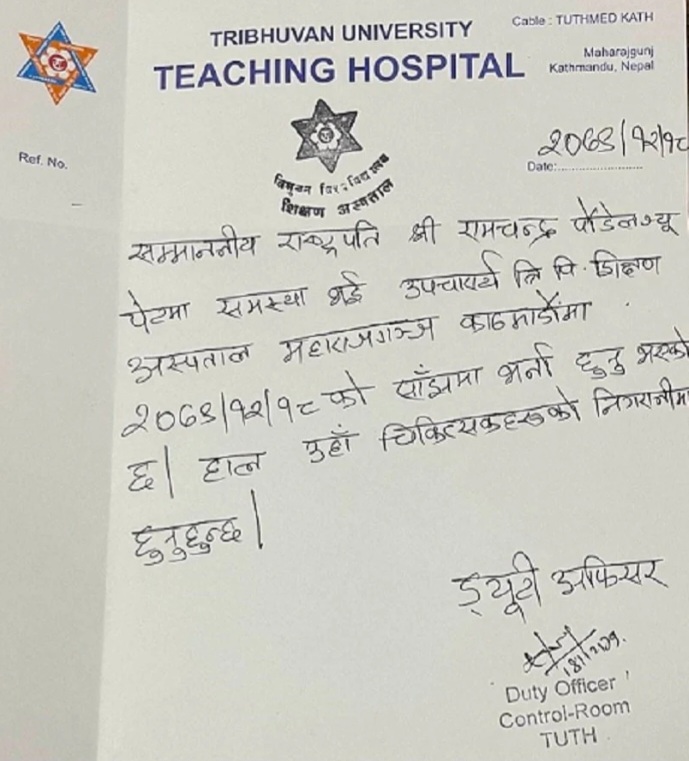 Cable : TUTHMED KATH
TRIBHUVAN UNIVERSITY
TEACHING HOSPITAL
Maharajgunj
Kathmandu, Nepal
Ref. No.
२०७९/१२/१८
Date:
त्रिभुवन विश्वविद्यालय
शिक्षण अस्पताल
सम्माननीय राष्ट्रपति श्री रामचन्द्र पौडेलज्यू
पेटमा समस्या भई उपचारार्थ त्रि वि. शिक्षण
अस्पताल महाराजगञ्ज काठमाडौंमा
२०७९/१२/१८ को साँझमा भर्ना हुनु भएको
छ। हाल उहाँ चिकित्सकहरूको निगरानीमा
हुनुहुन्छ।
ड्यूटी अफिसर
Duty Officer
Control-Room
TUTH